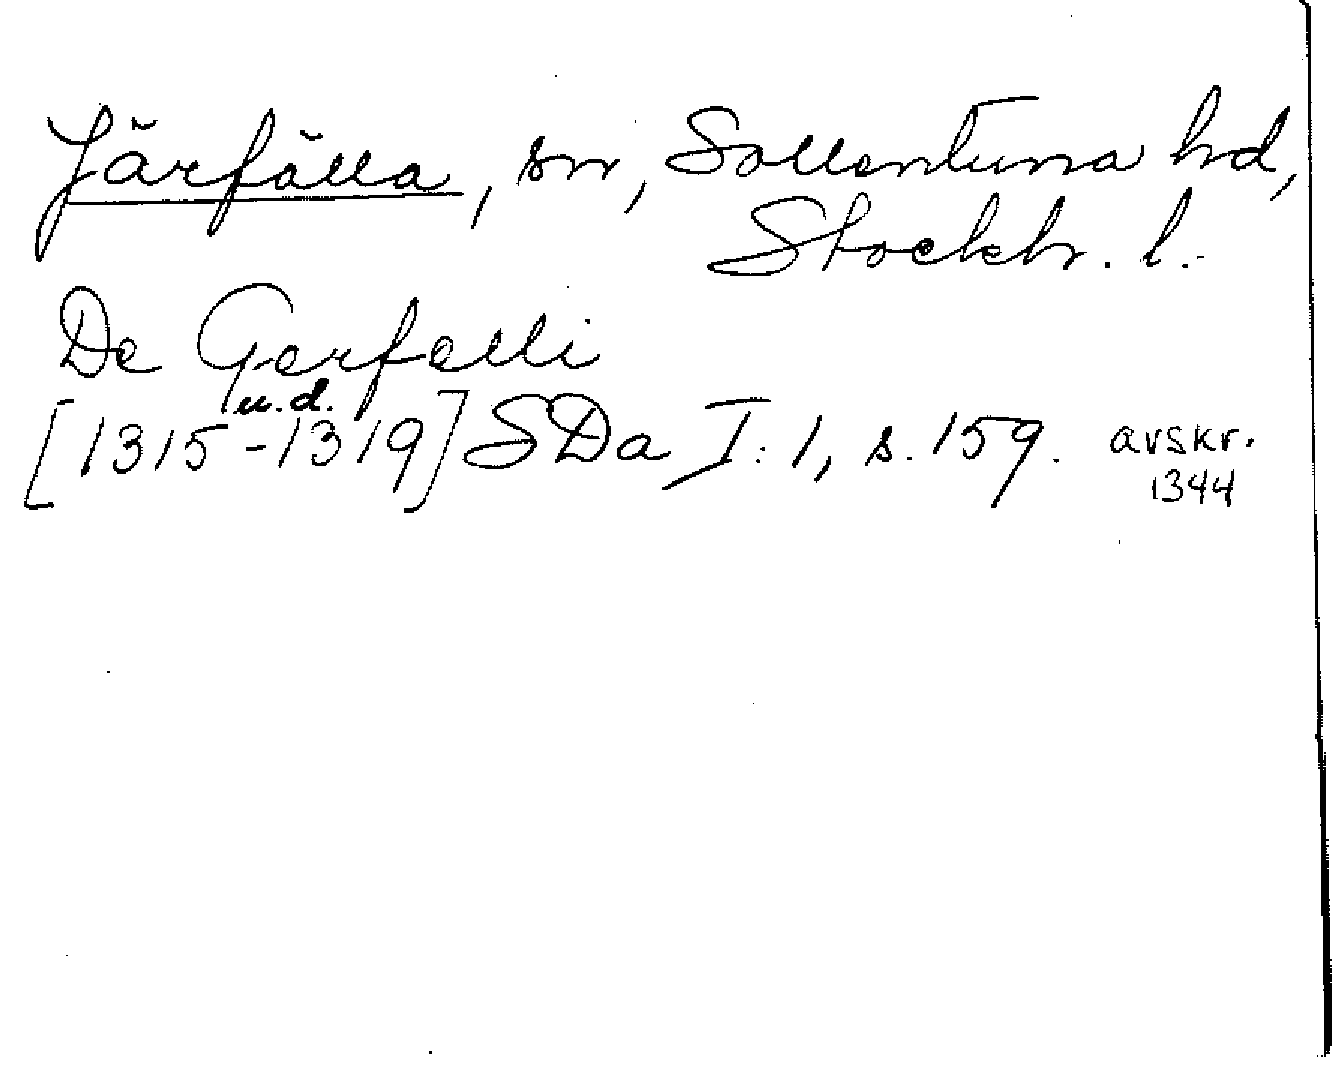 Järfälla, sn, Sollentuna hd,
Stockh. l.
De Gerfelli
u.d.
[1315-1319] SDa I:1, s. 159. avskr.
1344